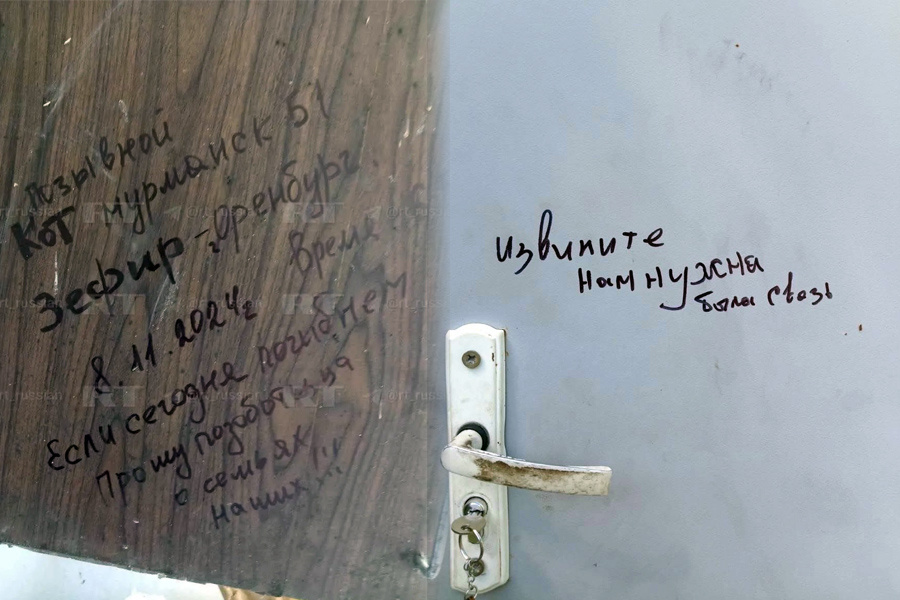 Позывной
Кот мурманск 51
Зефир-Оренбург.
Время:
8.11.2024г
Если сегодня погибнем
Прошу позаботьтца
о семьях
наших!!!
извините
нам нужна
была связь
RT
@rt_russian